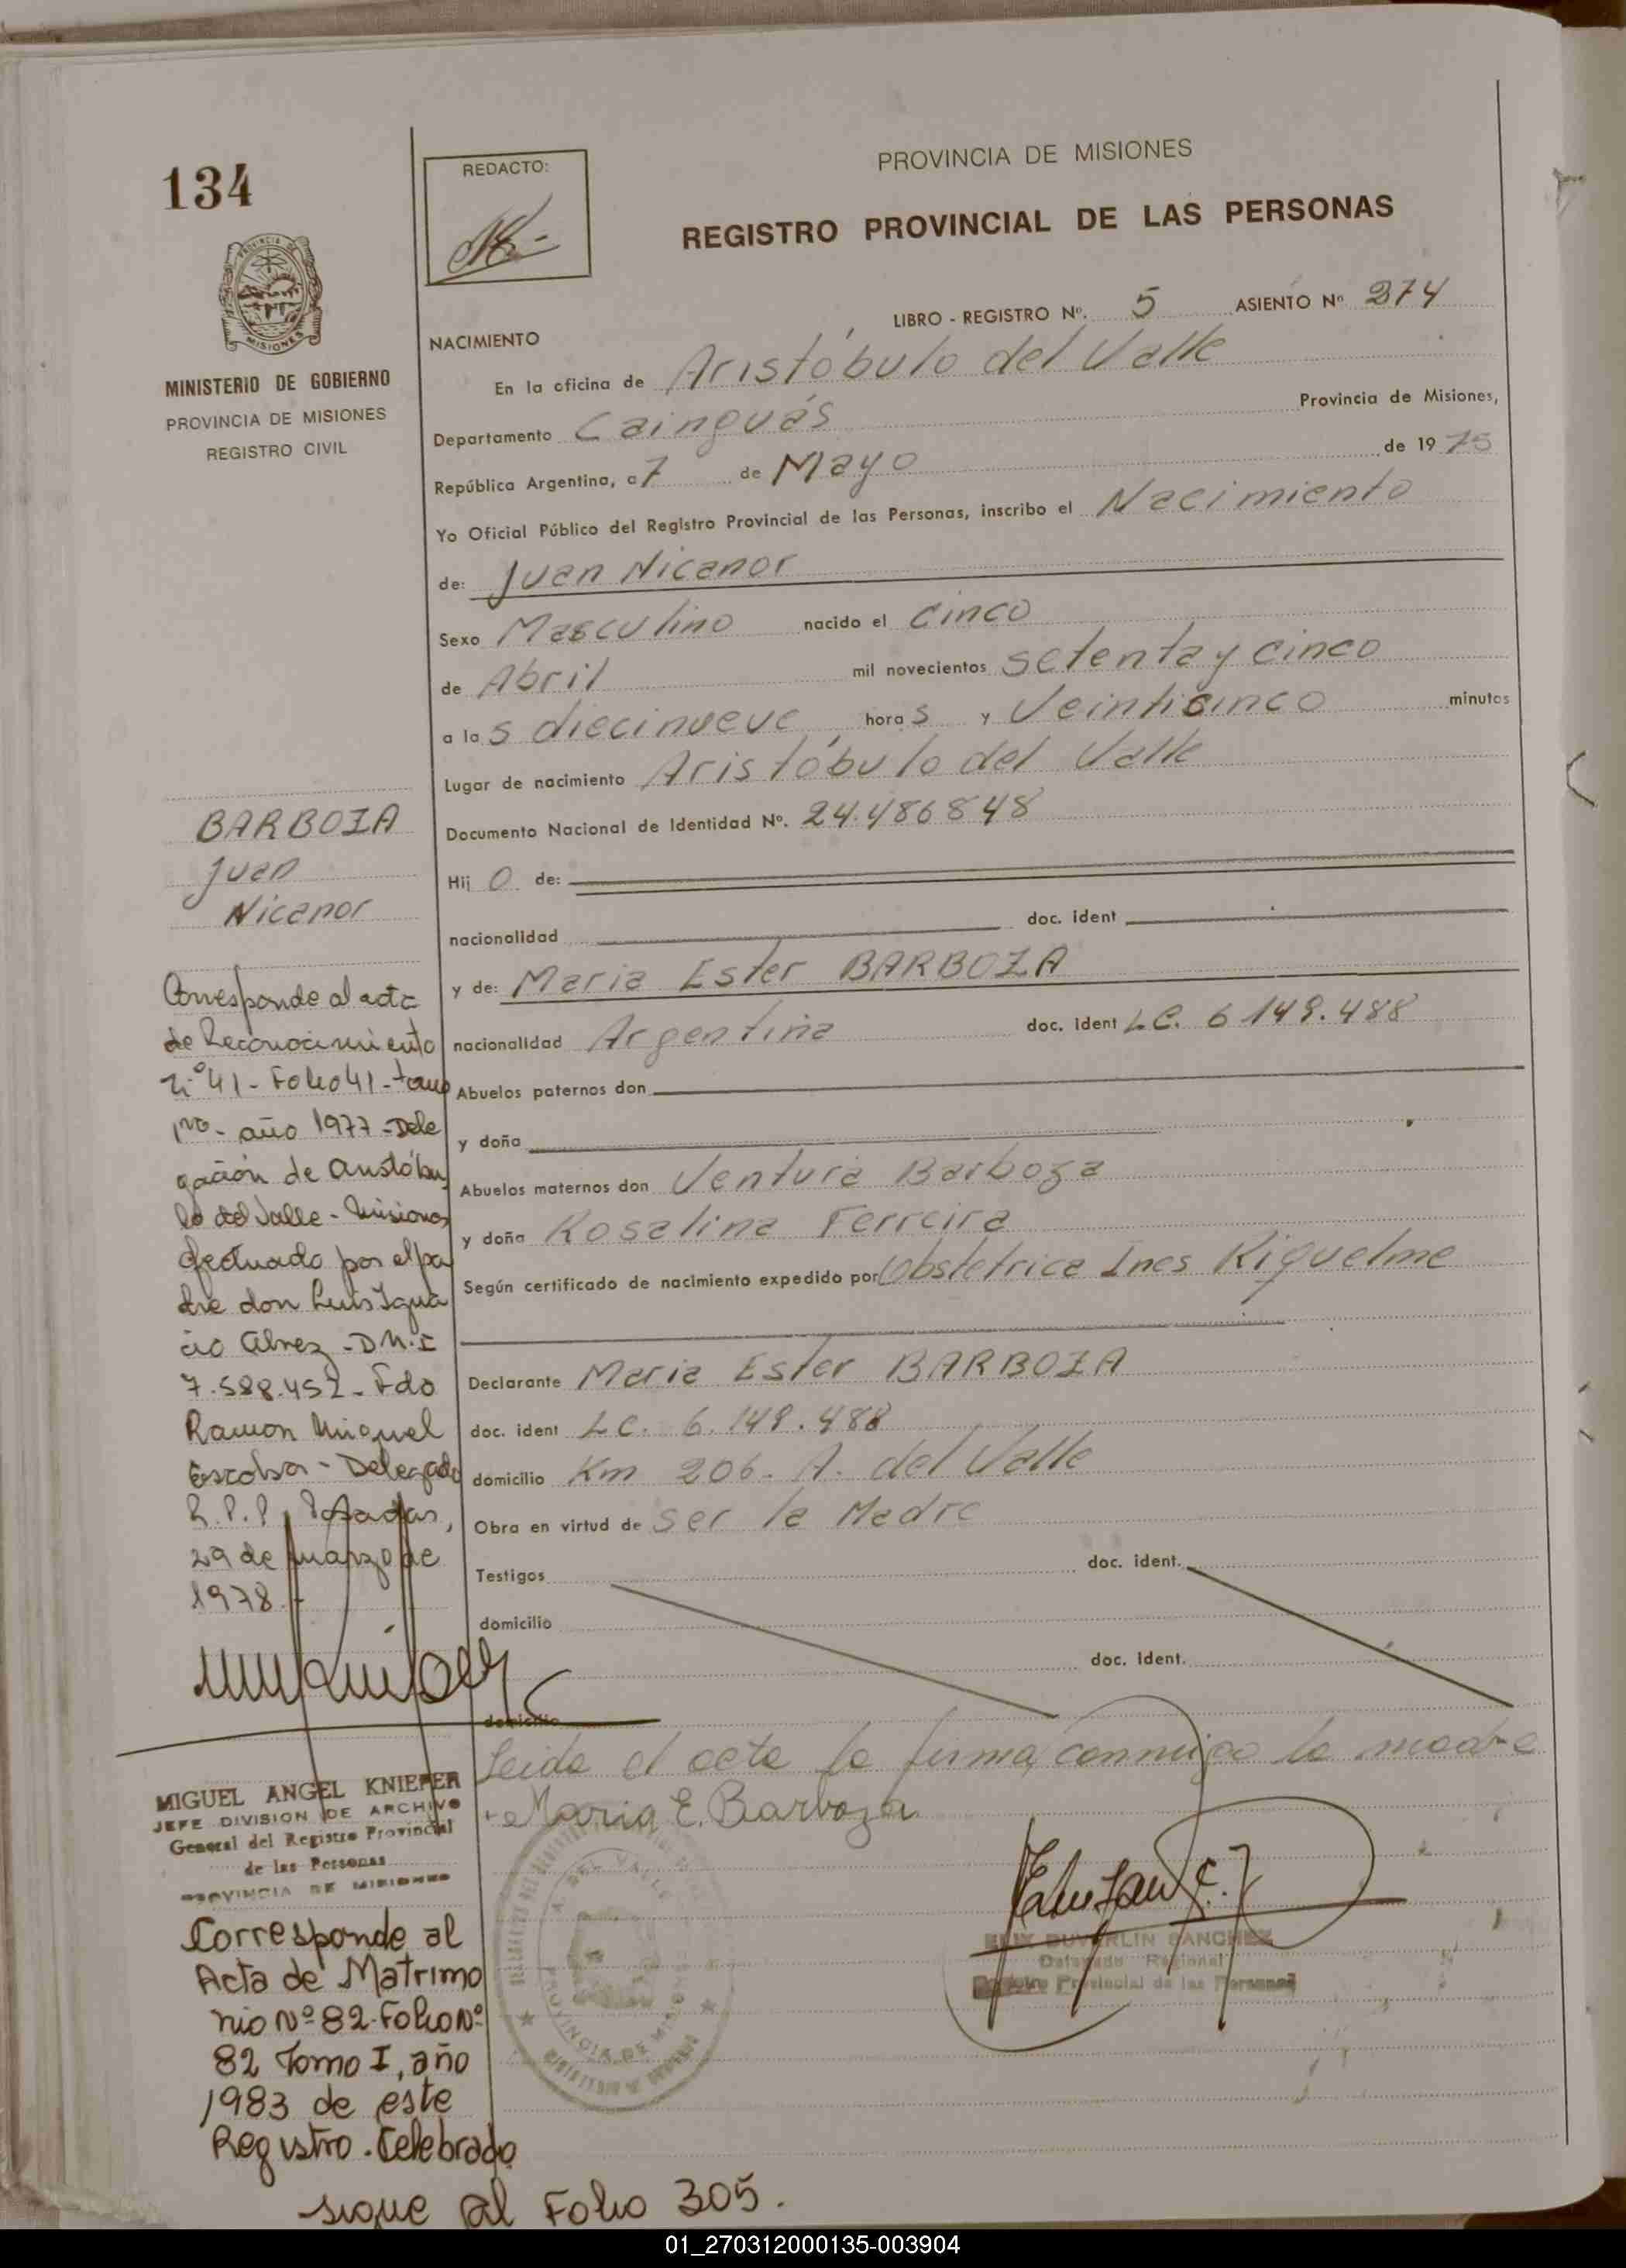 134
REDACTO:
PROVINCIA DE MISIONES
REGISTRO PROVINCIAL DE LAS PERSONAS
MISIONES
MINISTERIO DE GOBIERNO
PROVINCIA DE MISIONES
REGISTRO CIVIL
LIBRO - REGISTRO Nº. 5 ASIENTO Nº 274
NACIMIENTO
En la oficina de Aristóbulo del Valle
Departamento Cainguás Provincia de Misiones,
República Argentina, a 7 de Mayo de 1975
Yo Oficial Público del Registro Provincial de las Personas, inscribo el Nacimiento
de: Juan Nicanor
Sexo Masculino nacido el cinco
de Abril mil novecientos setenta y cinco
a las diecinueve horas y Veinticinco minutos
Lugar de nacimiento Aristóbulo del Valle
Documento Nacional de Identidad Nº. 24.486848
Hijo de:
nacionalidad doc. ident
y de: Maria Ester BARBOZA
nacionalidad Argentina doc. ident L.C. 6 149.488
Abuelos paternos don
y doña
Abuelos maternos don Ventura Barboza
y doña Rosalina Ferreira
Según certificado de nacimiento expedido por Obstetrica Ines Riquelme
Declarante Maria Ester BARBOZA
doc. ident L.C. 6.149.488
domicilio Km 206. A. del Valle
Obra en virtud de ser la Madre
Testigos doc. ident.
domicilio
doc. ident.
domicilio
Leida el acta la firma conmigo la madre
Maria E. Barboza
BARBOZA
Juan
Nicanor
Corresponde al acta
de Reconocimiento
nº 41 - Folio 41 - tomo
1ro - año 1977 - Dele
gación de Aristóbu
lo del Valle - Misiones
efectuado por el pa
dre don Luis Igna
cio Alvez - D.N.I
7.588.452 - Fdo
Ramon Miguel
Escobar - Delegado
R.P.P. Posadas,
29 de marzo de
1978.-
MIGUEL ANGEL KNIEPER
JEFE DIVISION DE ARCHIVO
General del Registro Provincial
de las Personas
PROVINCIA DE MISIONES
Corresponde al
Acta de Matrimo
nio Nº 82 - Folio Nº
82 Tomo I, año
1983 de este
Registro. Celebrado
sigue al Folio 305.
A. DEL VALLE
PROVINCIA DE MISIONES
MINISTERIO DE GOBIERNO
SANCHEZ
Delegado Regional
Registro Provincial de las Personas
01_270312000135-003904